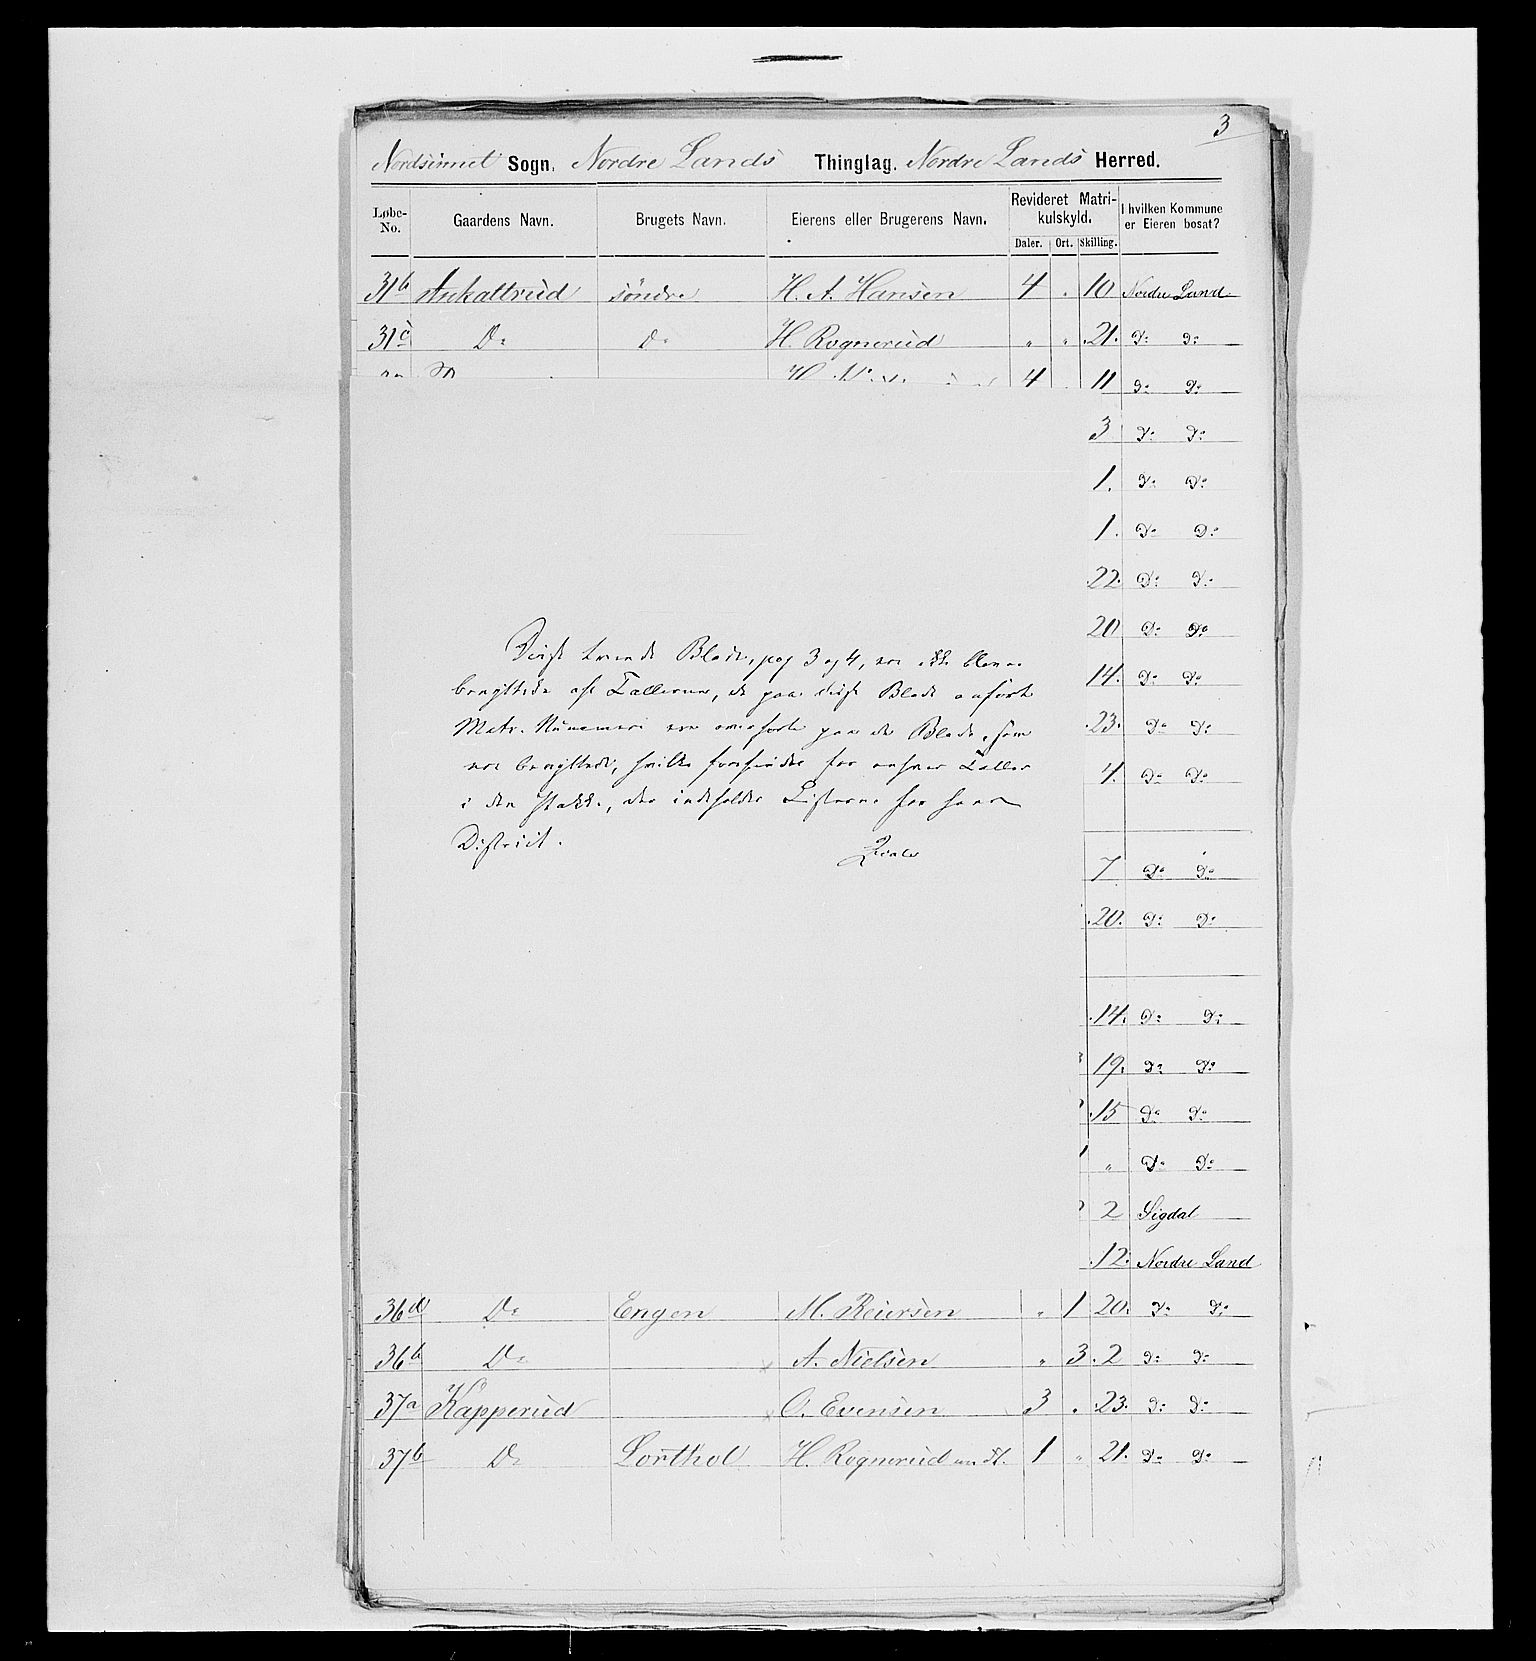 3
Nordsinnet Sogn. Nordre Lands Thinglag. Nordre Lands Herred.
Løbe-No. Gaardens Navn. Brugets Navn. Eierens eller Brugerens Navn. Revideret Matrikulskyld. I hvilken Kommune er Eieren bosat?
Daler. Ort. Skilling.
31b Askattrud söndre H. A. Hansen 4 . 10 Nordre Land
31c Do Do H. Rognerud " " 21. Do Do
4 . 11 Do Do
3 Do Do
1. Do Do
1. Do Do
22. Do Do
20 Do Do
Disse tvende Blade, pag 3 og 4, ere ikke blevne
14. Do Do
benyttede af Tællerne, de paa disse Blade anførte
23. Do Do
Matr. Nummere ere overførte paa de Blade, som
ere benyttede, hvilke forefindes for enhver Tæller
4. Do Do
i den Pakke, der indeholder Listerne for hans
District.
7 Do Do
20. Do Do
14. Do Do
19. Do Do
15 Do Do
" Do Do
2 Sigdal
12. Nordre Land
36d Do Engen M. Reiersen " 1 20. Do Do
36b Do A. Nielsen " 3 . 2 Do Do
37a Kapperud O. Evensen 3 . 23. Do Do
37b Do Lorthol H. Rognerud 1 " 21. Do Do